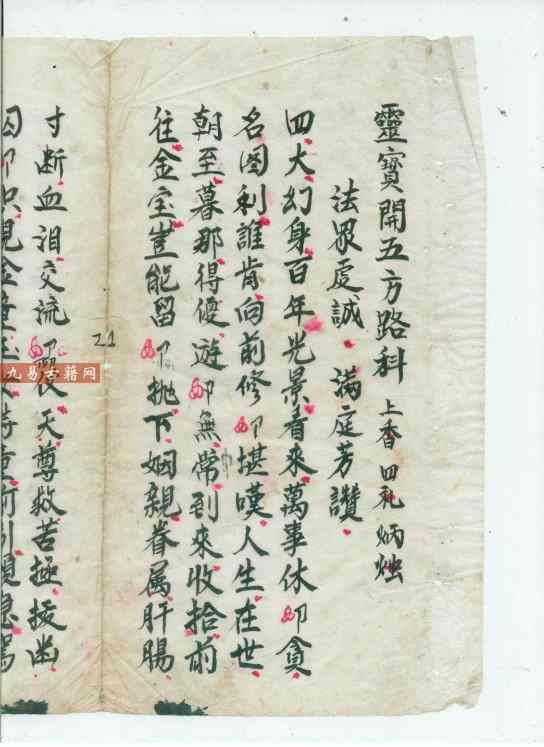 靈寶開五方路科 上香四礼炳烛
法眾虔誠 滿庭芳讚
四大幻身百年光景看來萬事休 貪
名圖利誰肯向前修 堪嘆人生在世
朝至暮那得優遊 無常到來收拾前
往金宝豈能留 拋下姻親眷属肝腸
21
寸断血泪交流 天尊救苦極拔幽
九易古籍网